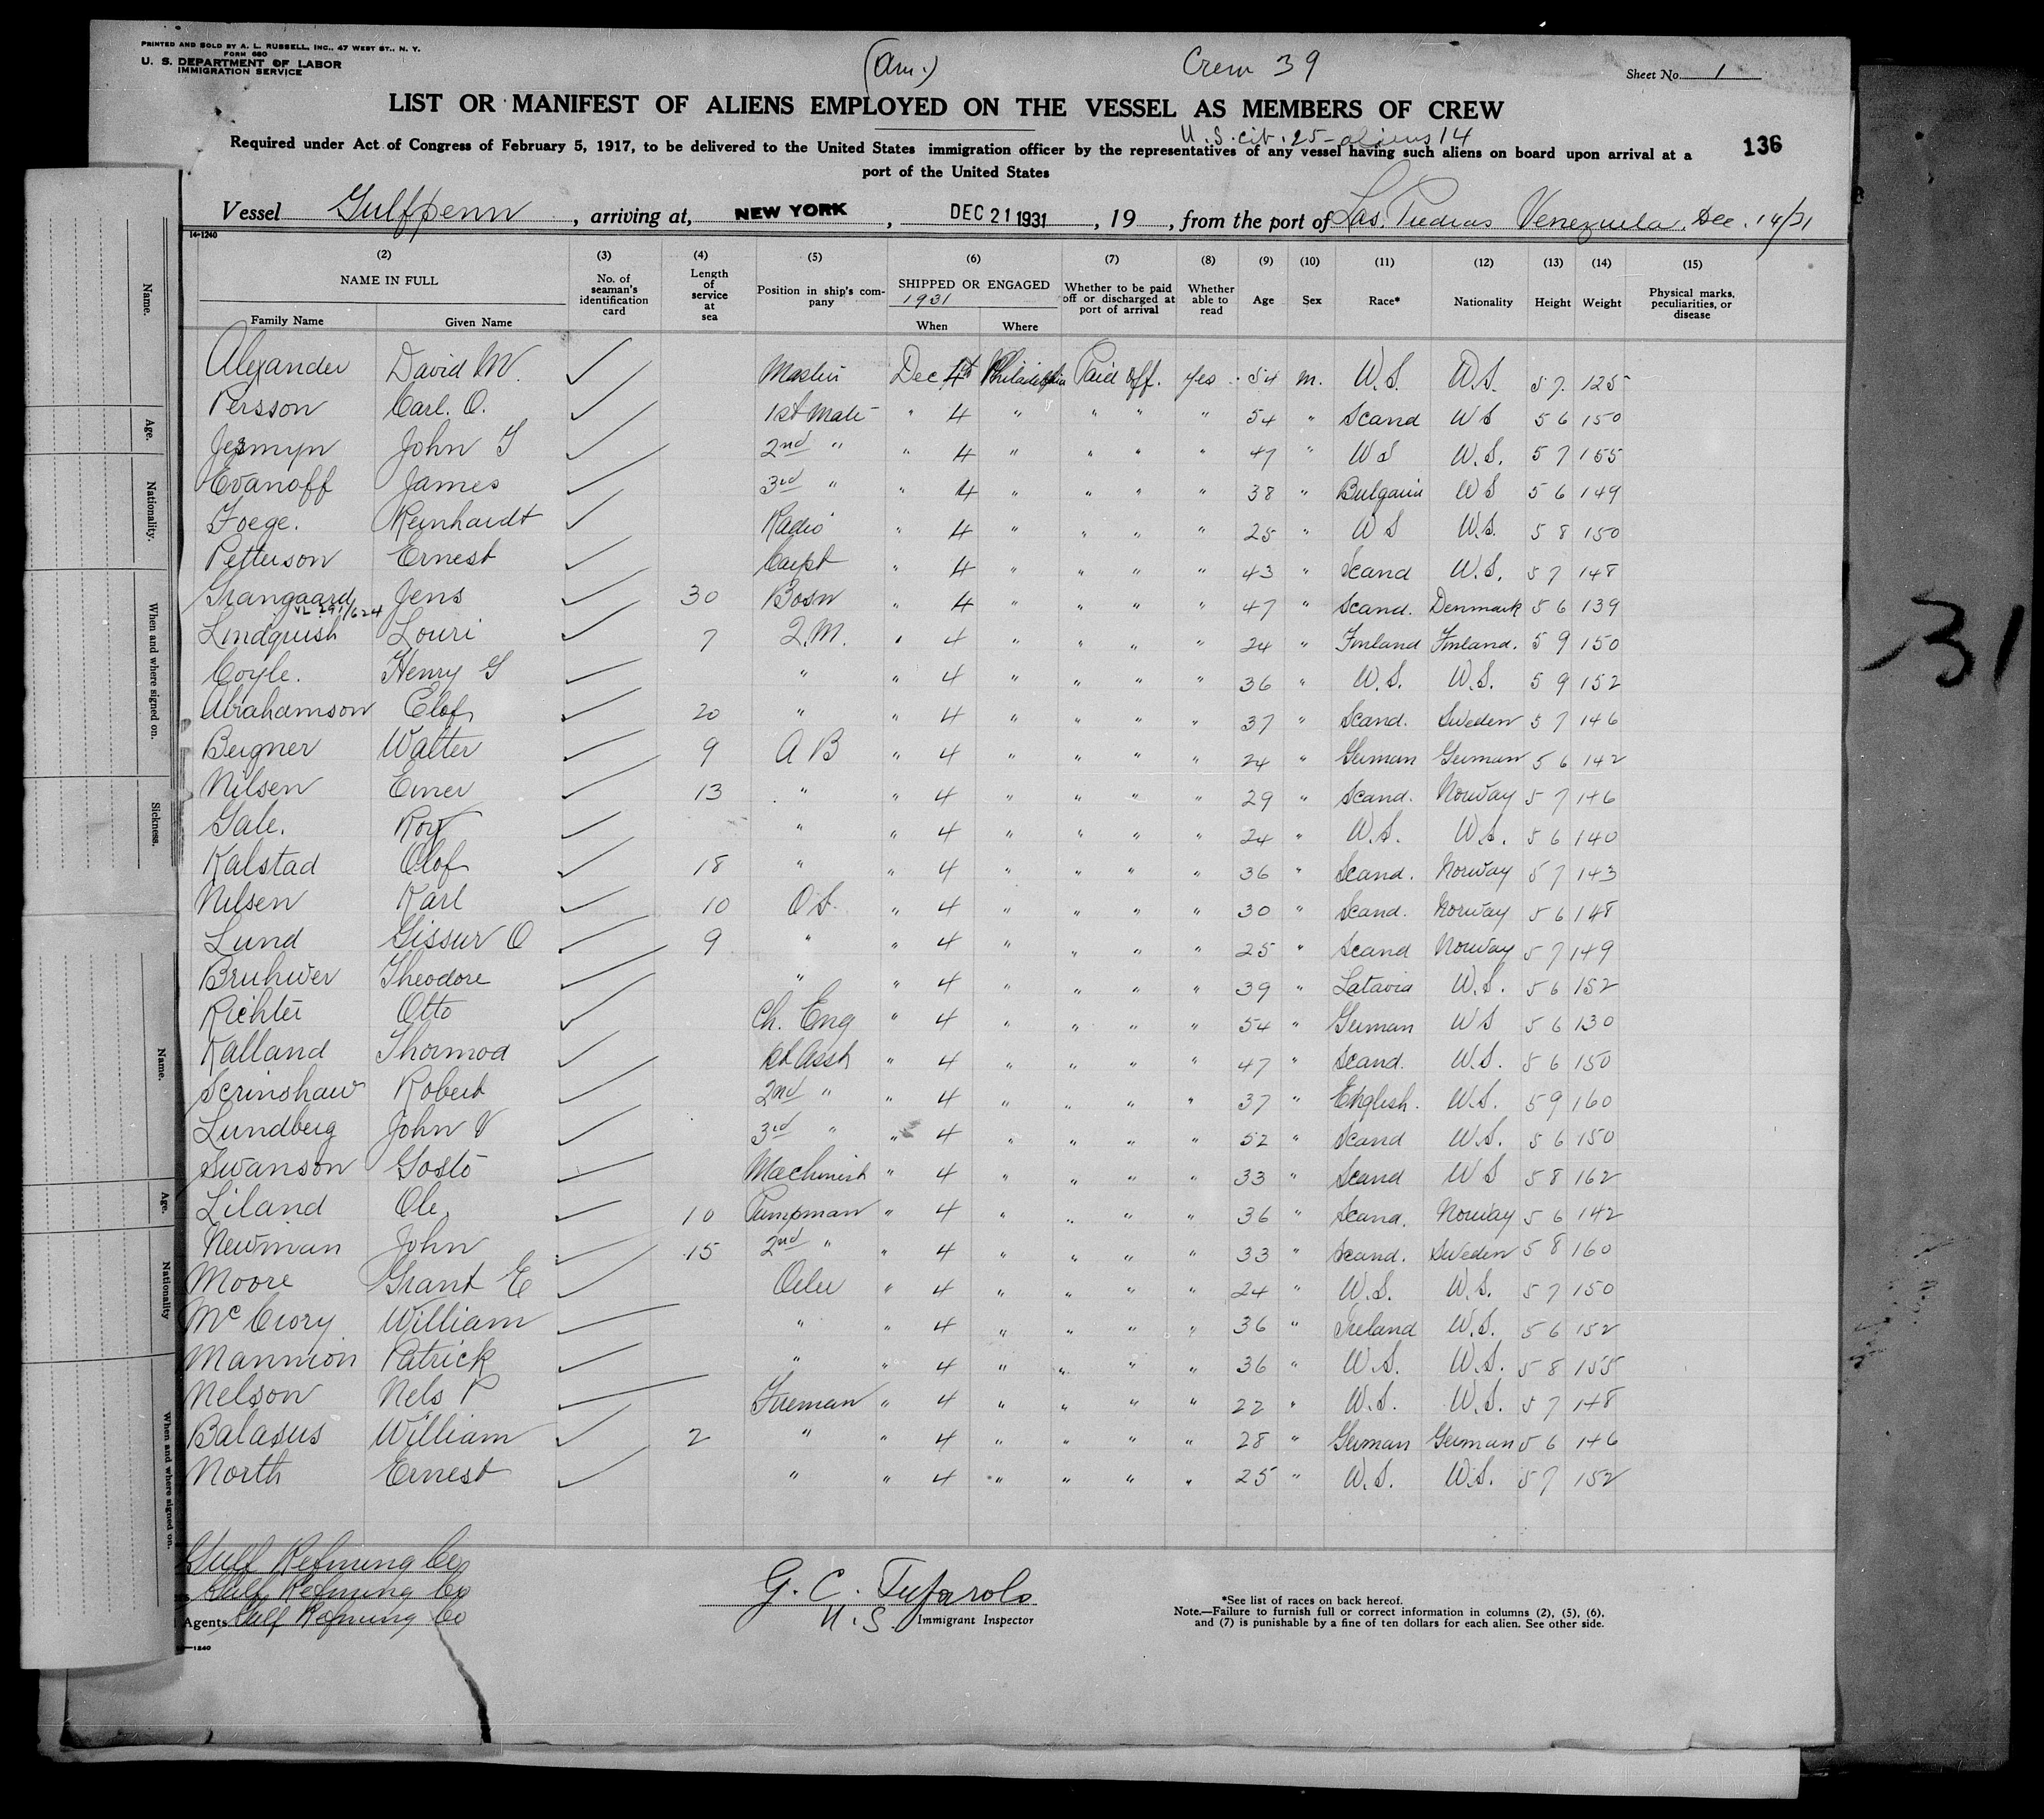 PRINTED AND SOLD BY A. L. RUSSELL, INC., 47 WEST ST., N. Y.
FORM 680
U. S. DEPARTMENT OF LABOR
IMMIGRATION SERVICE
(Am.)
Crew 39
Sheet No. 1
LIST OR MANIFEST OF ALIENS EMPLOYED ON THE VESSEL AS MEMBERS OF CREW
U.S. cit. 25 - aliens 14
Required under Act of Congress of February 5, 1917, to be delivered to the United States immigration officer by the representatives of any vessel having such aliens on board upon arrival at a
port of the United States
136
Vessel Gulfpenn, arriving at, NEW YORK, DEC 21 1931, 19, from the port of Las Piedras Venezuela. Dec. 14/31
14-1240
(2) (3) (4) (5) (6) (7) (8) (9) (10) (11) (12) (13) (14) (15)
NAME IN FULL
Family Name Given Name
No. of seaman's identification card
Length of service at sea
Position in ship's company
SHIPPED OR ENGAGED
1931
When Where
Whether to be paid off or discharged at port of arrival
Whether able to read
Age Sex Race* Nationality Height Weight
Physical marks, peculiarities, or disease
Alexander David W. Master Dec 4th Philadelphia Paid off. yes 54 m. U.S. U.S. 5 7 125
Persson Carl. O. 1st Mate " 4 " " " " 54 " Scand U S 5 6 150
Jermyn John T 2nd " " 4 " " " " 47 " U S U.S. 5 7 155
Evanoff James 3rd " " 4 " " " " 38 " Bulgaria U S 5 6 149
Foege. Reinhardt Radio " 4 " " " " 25 " U S U.S. 5 8 150
Petterson Ernest Carpt " 4 " " " " 43 " Scand U.S. 5 7 148
Grangaard Jens 30 Bosn " 4 " " " " 47 " Scand. Denmark 5 6 139
VL 291/624
Lindquish Louri 7 Q.M. " 4 " " " " 24 " Finland Finland. 5 9 150
Coyle. Henry G " " 4 " " " " 36 " U.S. U.S. 5 9 152
Abrahamson Elof 20 " " 4 " " " " 37 " Scand. Sweden 5 7 146
Beigner Walter 9 A B " 4 " " " " 24 " German German 5 6 142
Nilsen Einer 13 " " 4 " " " " 29 " Scand. Norway 5 7 146
Gale. Roy " " 4 " " " " 24 " U.S. U.S. 5 6 140
Kalstad Olof 18 " " 4 " " " " 36 " Scand. Norway 5 7 143
Nilsen Karl 10 O S. " 4 " " " " 30 " Scand. Norway 5 6 148
Lund Gissur O 9 " " 4 " " " " 25 " Scand Norway 5 7 149
Bruhwer Theodore " " 4 " " " " 39 " Latavia U.S. 5 6 152
Richter Otto Ch. Eng " 4 " " " " 54 " German U S 5 6 130
Kalland Thormod 1st Asst " 4 " " " " 47 " Scand. U.S. 5 6 150
Scrinshaw Robert 2nd " " 4 " " " " 37 " English. U.S. 5 9 160
Lundberg John V 3rd " " 4 " " " " 52 " Scand U.S. 5 6 150
Swanson Gosto Machinist " 4 " " " " 33 " Scand U S 5 8 162
Liland Ole 10 Pumpman " 4 " " " " 36 " Scand. Norway 5 6 142
Newman John 15 2nd " " 4 " " " " 33 " Scand. Sweden 5 8 160
Moore Grant E Oiler " 4 " " " " 24 " U.S. U.S. 5 7 150
McCrory William " " 4 " " " " 36 " Ireland U.S. 5 6 152
Mannion Patrick " " 4 " " " " 36 " U.S. U.S. 5 8 155
Nelson Nels P Fireman " 4 " " " " 22 " U.S. U.S. 5 7 148
Balasus William 2 " " 4 " " " " 28 " German German 5 6 146
North Ernest " " 4 " " " " 25 " U.S. U.S. 5 7 152
Gulf Refining Co
Gulf Refining Co
Agents Gulf Refining Co
1240
G. C. Tufarolo
U. S. Immigrant Inspector
*See list of races on back hereof.
Note.—Failure to furnish full or correct information in columns (2), (5), (6),
and (7) is punishable by a fine of ten dollars for each alien. See other side.
Name.
Age.
Nationality.
When and where signed on.
Sickness.
Name.
Age.
Nationality
When and where signed on.
31